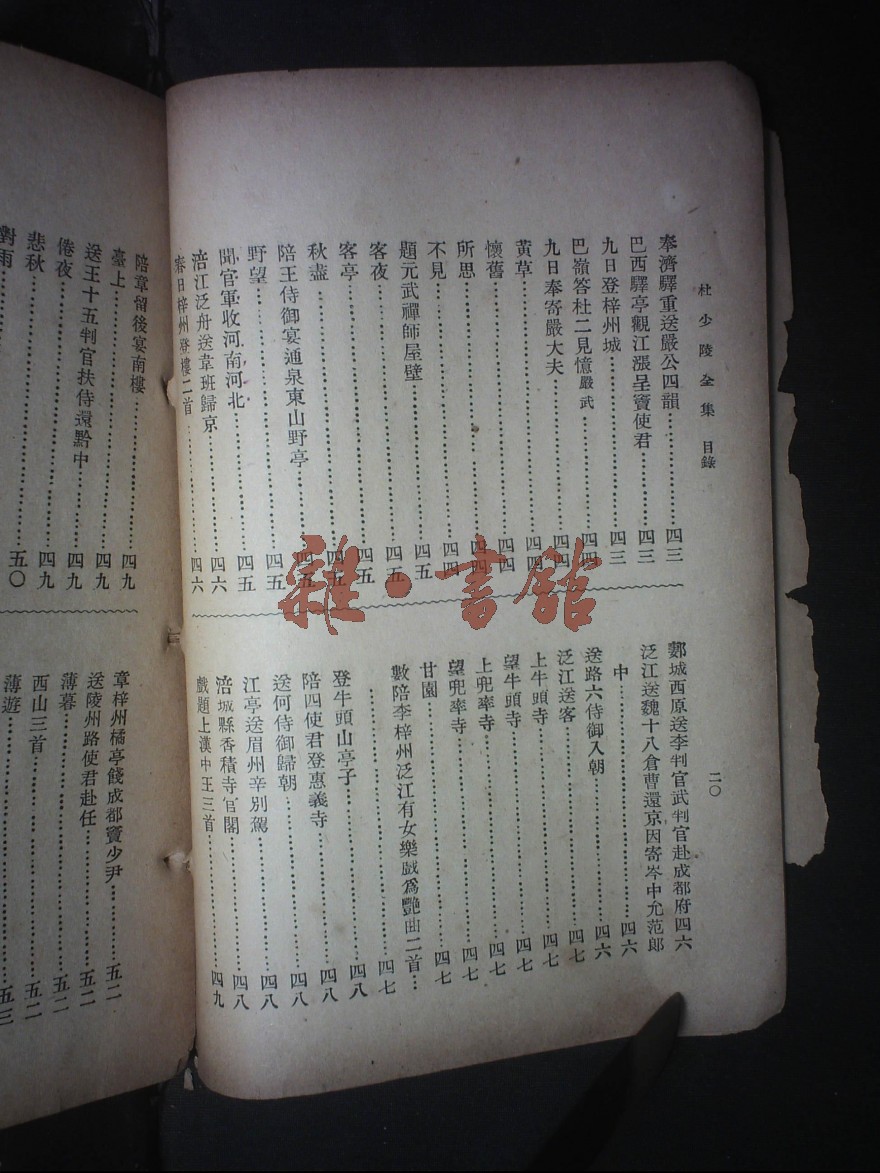 杜少陵全集 目錄
二〇
奉濟驛重送嚴公四韻……四三
巴西驛亭觀江漲呈竇使君……四三
九日登梓州城……四三
巴嶺答杜二見憶 嚴武……四四
九日奉寄嚴大夫……四四
黃草……四四
懷舊……四四
所思……四四
不見……四四
題元武禪師屋壁……四五
客夜……四五
客亭……四五
秋盡……四五
陪王侍御宴通泉東山野亭……四五
野望……四五
聞官軍收河南河北……四五
涪江泛舟送韋班歸京……四六
春日梓州登樓二首……四六
郪城西原送李判官武判官赴成都府四六
泛江送魏十八倉曹還京因寄岑中允范郎
中……四六
送路六侍御入朝……四六
泛江送客……四七
上牛頭寺……四七
望牛頭寺……四七
上兜率寺……四七
望兜率寺……四七
甘園……四七
數陪李梓州泛江有女樂戲為艷曲二首…
……四七
登牛頭山亭子……四八
陪四使君登惠義寺……四八
送何侍御歸朝……四八
江亭送眉州辛別駕……四八
涪城縣香積寺官閣……四八
戲題上漢中王三首……四九
陪章留後宴南樓
臺上……四九
送王十五判官扶侍還黔中……四九
倦夜……四九
悲秋……四九
對雨……五〇
章梓州橘亭餞成都竇少尹……五二
送陵州路使君赴任……五二
薄暮……五二
西山三首……五二
薄遊……五三
雜·書館